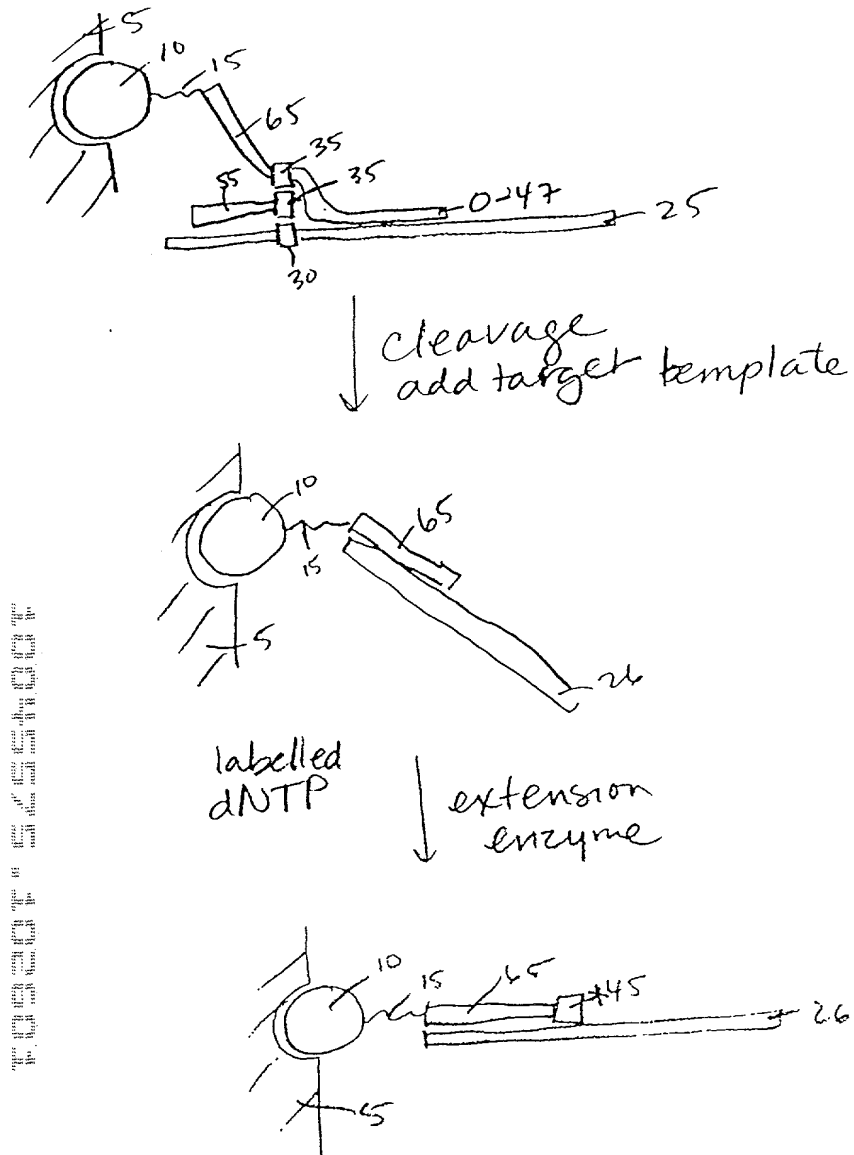 5
10
15
65
35
55
35
0-47
25
30
cleavage
add target template
10
65
15
5
26
labelled
dNTP
extension
enzyme
10
15
65
*45
26
5
10045575.102501